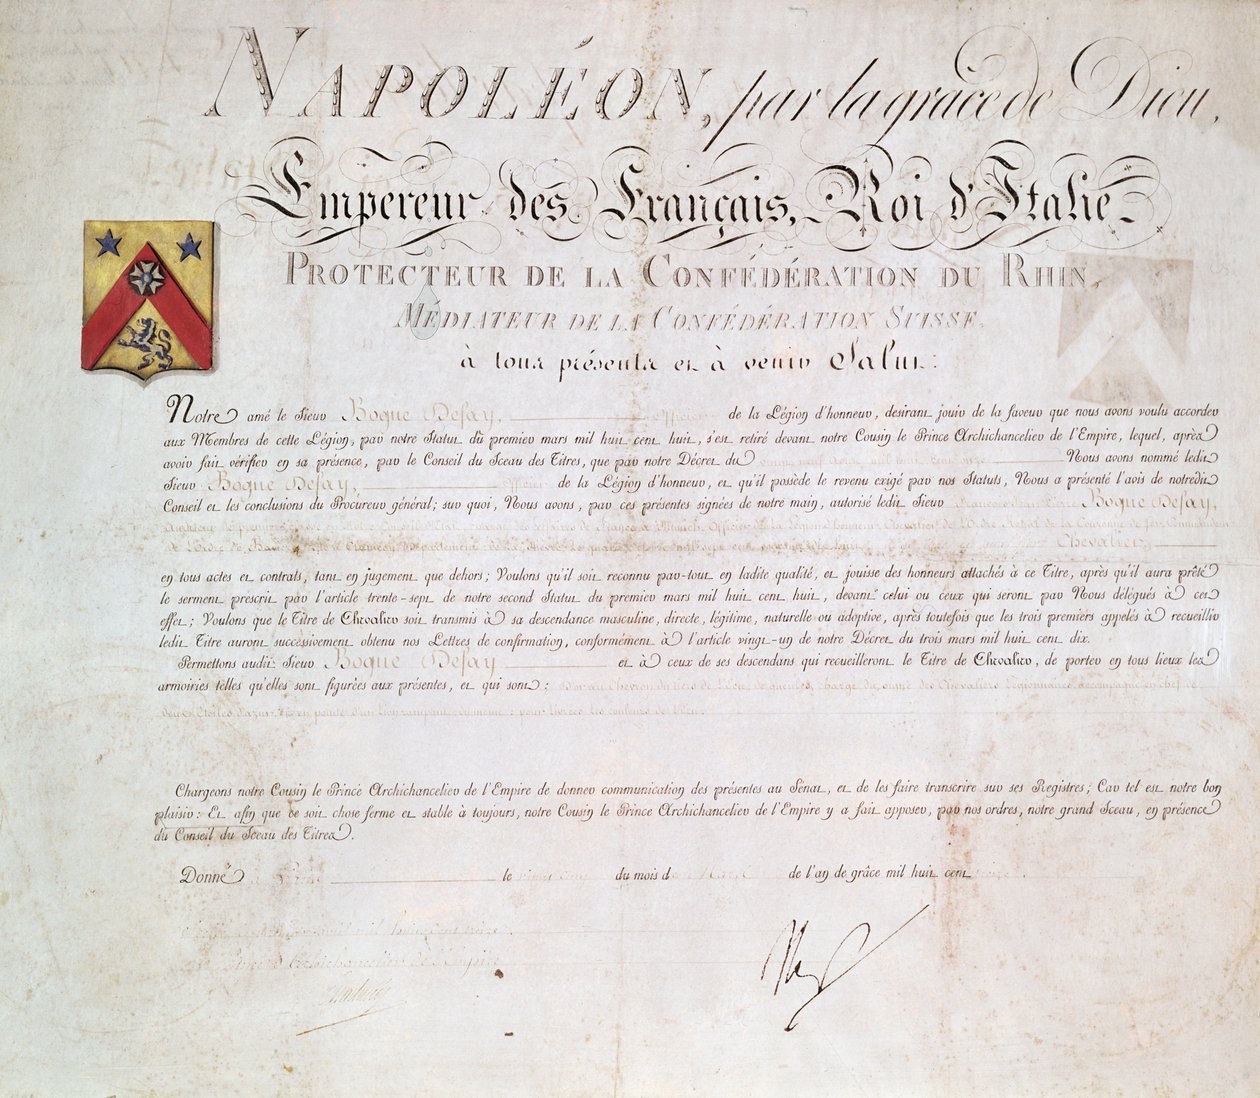 NAPOLÉON, par la grâce de Dieu,
Empereur des Français, Roi d'Italie
PROTECTEUR DE LA CONFÉDÉRATION DU RHIN,
MÉDIATEUR DE LA CONFÉDÉRATION SUISSE,
à tous présents et à venir Salut:
Notre amé le Sieur Bogne Defay, officier de la Légion d'honneur, desirant jouir de la faveur que nous avons voulu accorder
aux Membres de cette Légion, par notre Statut du premier mars mil huit cent huit, s'est retiré devant notre Cousin le Prince Archichancelier de l'Empire, lequel, après
avoir fait vérifier en sa présence, par le Conseil du Sceau des Titres, que par notre Décret du Nous avons nommé ledit
Sieur Bogne Defay, officier de la Légion d'honneur, et qu'il possède le revenu exigé par nos Statuts, Nous a présenté l'avis de notredit
Conseil et les conclusions du Procureur général; sur quoi, Nous avons, par ces présentes signées de notre main, autorisé ledit Sieur Bogne Defay,
Chevalier
en tous actes et contrats, tant en jugement que dehors; Voulons qu'il soit reconnu par-tout en ladite qualité, et jouisse des honneurs attachés à ce Titre, après qu'il aura prêté
le serment prescrit par l'article trente-sept de notre second Statut du premier mars mil huit cent huit, devant celui ou ceux qui seront par Nous délégués à cet
effet; Voulons que le Titre de Chevalier soit transmis à sa descendance masculine, directe, légitime, naturelle ou adoptive, après toutefois que les trois premiers appelés à recueillir
ledit Titre auront successivement obtenu nos Lettres de confirmation, conformément à l'article vingt-un de notre Décret du trois mars mil huit cent dix.
Permettons audit Sieur Bogne Defay et à ceux de ses descendans qui recueilleront le Titre de Chevalier, de porter en tous lieux les
armoiries telles qu'elles sont figurées aux présentes, et qui sont: chevron de gueules, chargé du signe des Chevaliers Légionnaires accompagné en chef de
deux étoiles d'azur, et en pointe d'un lion rampant du même; pour livrées les couleurs de l'écu.
Chargeons notre Cousin le Prince Archichancelier de l'Empire de donner communication des présentes au Sénat, et de les faire transcrire sur ses Registres; Car tel est notre bon
plaisir: Et afin que ce soit chose ferme et stable à toujours, notre Cousin le Prince Archichancelier de l'Empire y a fait apposer, par nos ordres, notre grand Sceau, en présence
du Conseil du Sceau des Titres.
Donné le du mois de Mars de l'an de grâce mil huit cent
mil huit cent treize
Prince Archichancelier de l'Empire